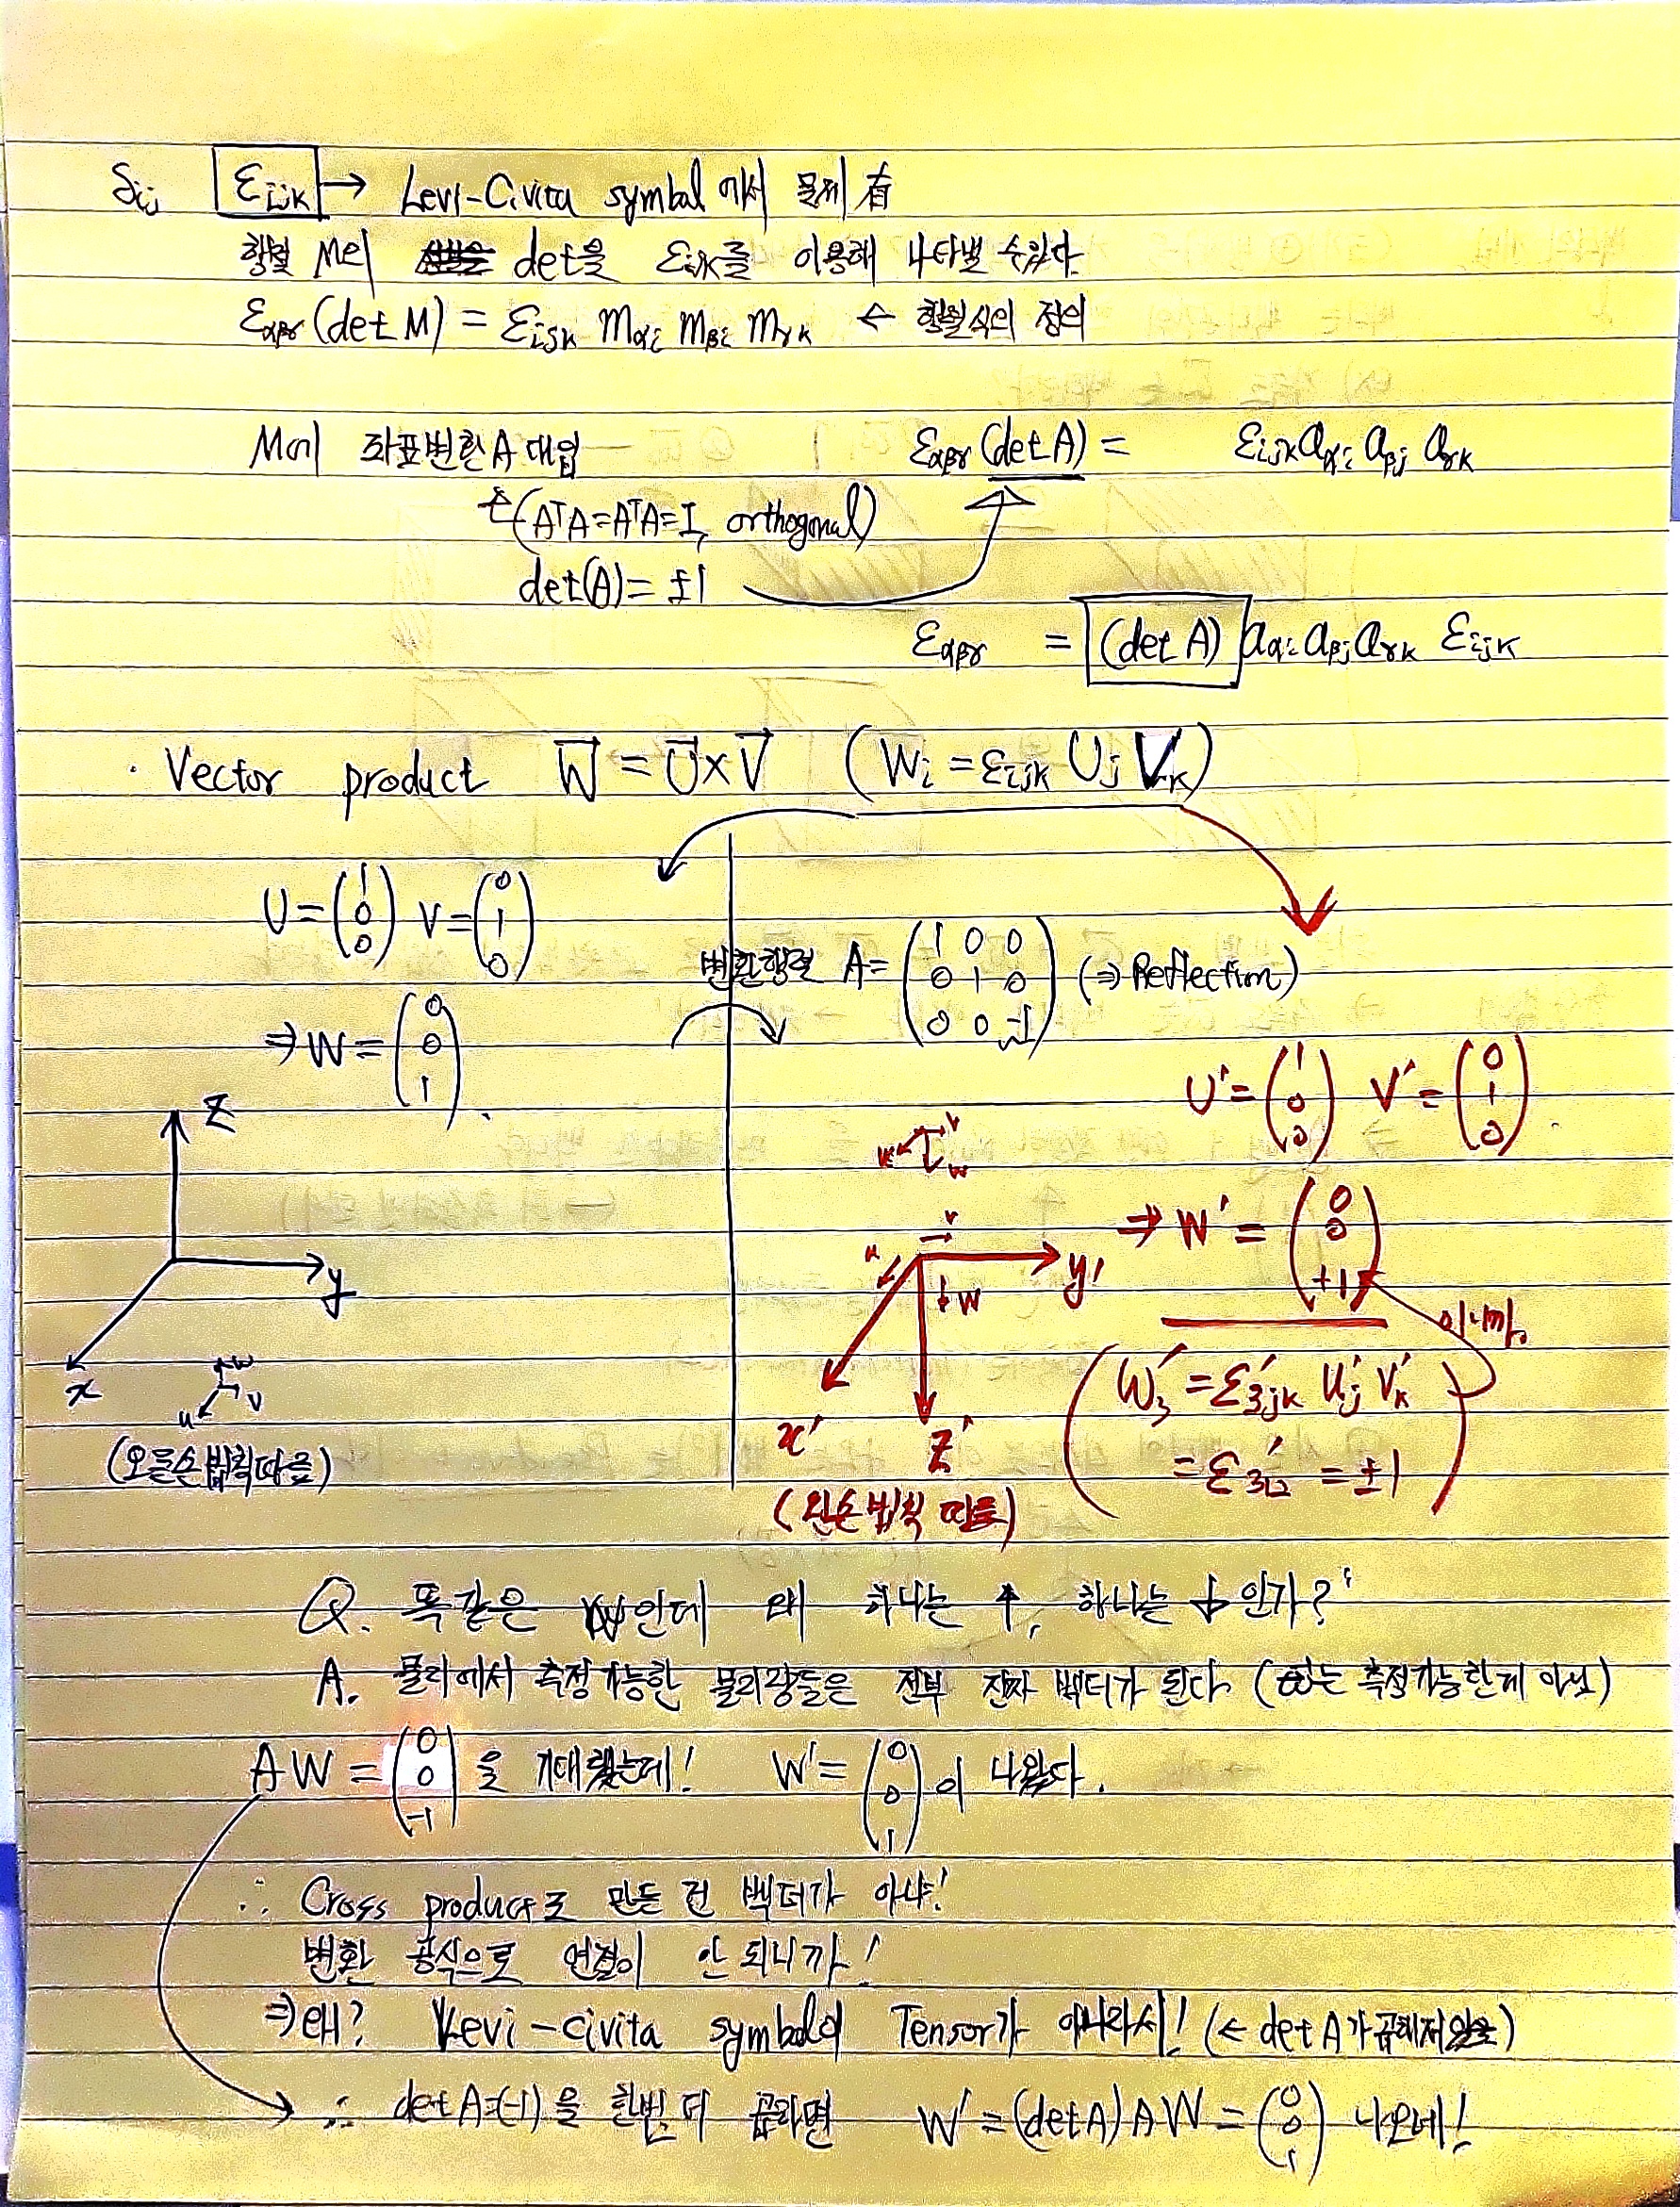 δij εijk → Levi-Civita symbol에서 문제 有
행렬 M의 det을 εijk를 이용해 나타낼 수 있다
εαβγ (det M) = εijk mαi mβj mγk ← 행렬식의 정의
M에 좌표변환 A 대입 εαβγ (det A) = εijk aαi aβj aγk
(AᵀA=AᵀA=I, orthogonal)
det(A) = ±1
εαβγ = (det A) aαi aβj aγk εijk
· Vector product W = U×V (Wi = εijk Uj Vk)
U = (1 0 0) V = (0 1 0)
⇒ W = (0 0 1)
z
y
x
w
v
u
(오른손 법칙 따름)
변환행렬 A = (1 0 0 / 0 1 0 / 0 0 -1) (⇒ Reflection)
U' = (1 0 0) V' = (0 1 0)
v
w
⇒ W' = (0 0 +1)
v
u
y'
w
x'
z'
(왼손 법칙 따름)
이니까.
(W'3 = ε'3jk U'j V'k
= ε'312 = ±1)
Q. 똑같은 W인데 왜 하나는 ↑, 하나는 ↓인가?
A. 물리에서 측정가능한 물리량들은 전부 진짜 벡터가 된다. (는 측정가능한게 아님)
AW = (0 0 -1) 을 기대했는데! W' = (0 0 1) 이 나왔다.
∴ Cross product로 만든 건 벡터가 아냐!
변환 공식으로 연결이 안 되니까!
⇒ 왜? Levi-civita symbol이 Tensor가 아니라서! (← det A가 곱해져 있음)
∴ det A=(-1)을 한번 더 곱하면 W' = (det A) A W = (0 0 1) 나오네!